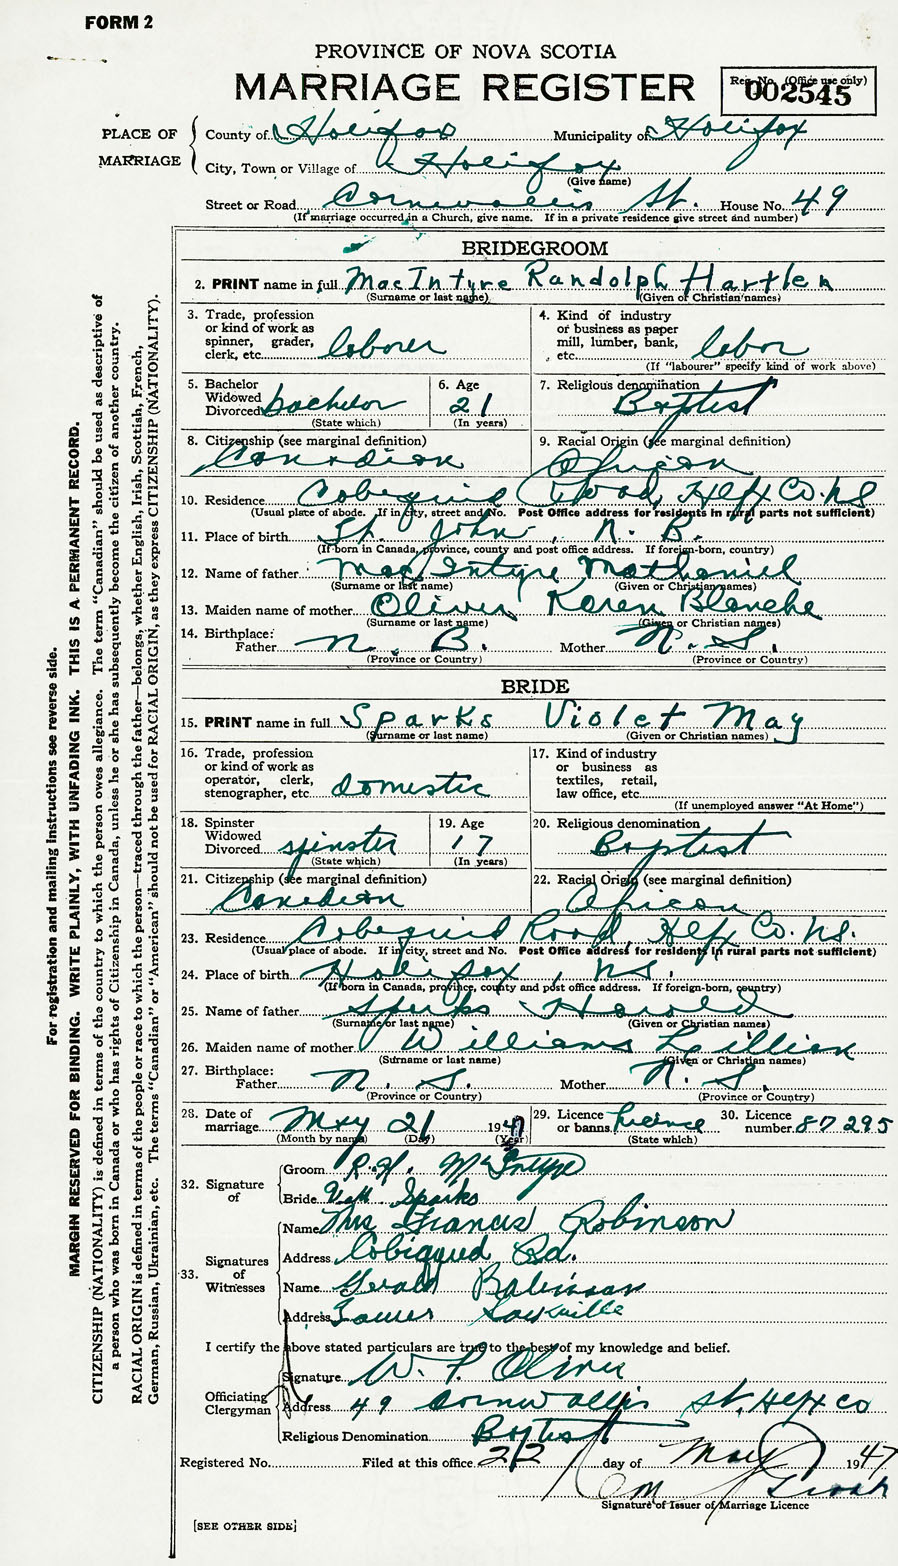 FORM 2
PROVINCE OF NOVA SCOTIA
MARRIAGE REGISTER
Reg. No. (Office use only)
002545
PLACE OF MARRIAGE
County of Halifax Municipality of Halifax
City, Town or Village of Halifax
(Give name)
Street or Road Cornwallis St. House No. 49
(If marriage occurred in a Church, give name. If in a private residence give street and number)
BRIDEGROOM
2. PRINT name in full MacIntyre Randolph Hartlen
(Surname or last name) (Given or Christian names)
3. Trade, profession or kind of work as spinner, grader, clerk, etc. laborer
4. Kind of industry or business as paper mill, lumber, bank, etc. labor
(If "labourer" specify kind of work above)
5. Bachelor Widowed Divorced bachelor
(State which)
6. Age 21
(In years)
7. Religious denomination Baptist
8. Citizenship (see marginal definition) Canadian
9. Racial Origin (see marginal definition) African
10. Residence Cobequid Road, Hlfx Co. N.S
(Usual place of abode. If in city, street and No. Post Office address for residents in rural parts not sufficient)
11. Place of birth St. John, N. B.
(If born in Canada, province, county and post office address. If foreign-born, country)
12. Name of father MacIntyre Nathaniel
(Surname or last name) (Given or Christian names)
13. Maiden name of mother Oliver Karen Blanche
(Surname or last name) (Given or Christian names)
14. Birthplace: Father N. B. Mother N. S.
(Province or Country) (Province or Country)
BRIDE
15. PRINT name in full Sparks Violet May
(Surname or last name) (Given or Christian names)
16. Trade, profession or kind of work as operator, clerk, stenographer, etc. domestic
17. Kind of industry or business as textiles, retail, law office, etc.
(If unemployed answer "At Home")
18. Spinster Widowed Divorced spinster
(State which)
19. Age 17
(In years)
20. Religious denomination Baptist
21. Citizenship (see marginal definition) Canadian
22. Racial Origin (see marginal definition) African
23. Residence Cobequid Road Hlfx Co. N.S.
(Usual place of abode. If in city, street and No. Post Office address for residents in rural parts not sufficient)
24. Place of birth Halifax, N.S.
(If born in Canada, province, county and post office address. If foreign-born, country)
25. Name of father Sparks Harold
(Surname or last name) (Given or Christian names)
26. Maiden name of mother Williams Lillian
(Surname or last name) (Given or Christian names)
27. Birthplace: Father N. S. Mother N. S.
(Province or Country) (Province or Country)
28. Date of marriage May 21 1947
(Month by name) (Day) (Year)
29. Licence or banns licence
(State which)
30. Licence number 87295
32. Signature of
Groom R. H. McIntyre
Bride V. M. Sparks
33. Signatures of Witnesses
Name Mrs Francis Robinson
Address Cobiqqued Rd.
Name Gerald Robinson
Address Lower Sackville
I certify the above stated particulars are true to the best of my knowledge and belief.
Officiating Clergyman
Signature W. P. Oliver
Address 49 Cornwallis St. Hlfx Co
Religious Denomination Baptist
Registered No. Filed at this office 22 day of May 1947
Signature of Issuer of Marriage Licence
[SEE OTHER SIDE]
For registration and mailing instructions see reverse side.
MARGIN RESERVED FOR BINDING. WRITE PLAINLY, WITH UNFADING INK. THIS IS A PERMANENT RECORD.
CITIZENSHIP (NATIONALITY) is defined in terms of the country to which the person owes allegiance. The term "Canadian" should be used as descriptive of
a person who was born in Canada or who has rights of Citizenship in Canada, unless he or she has subsequently become the citizen of another country.
RACIAL ORIGIN is defined in terms of the people or race to which the person—traced through the father—belongs, whether English, Irish, Scottish, French,
German, Russian, Ukrainian, etc. The terms "Canadian" or "American" should not be used for RACIAL ORIGIN, as they express CITIZENSHIP (NATIONALITY).